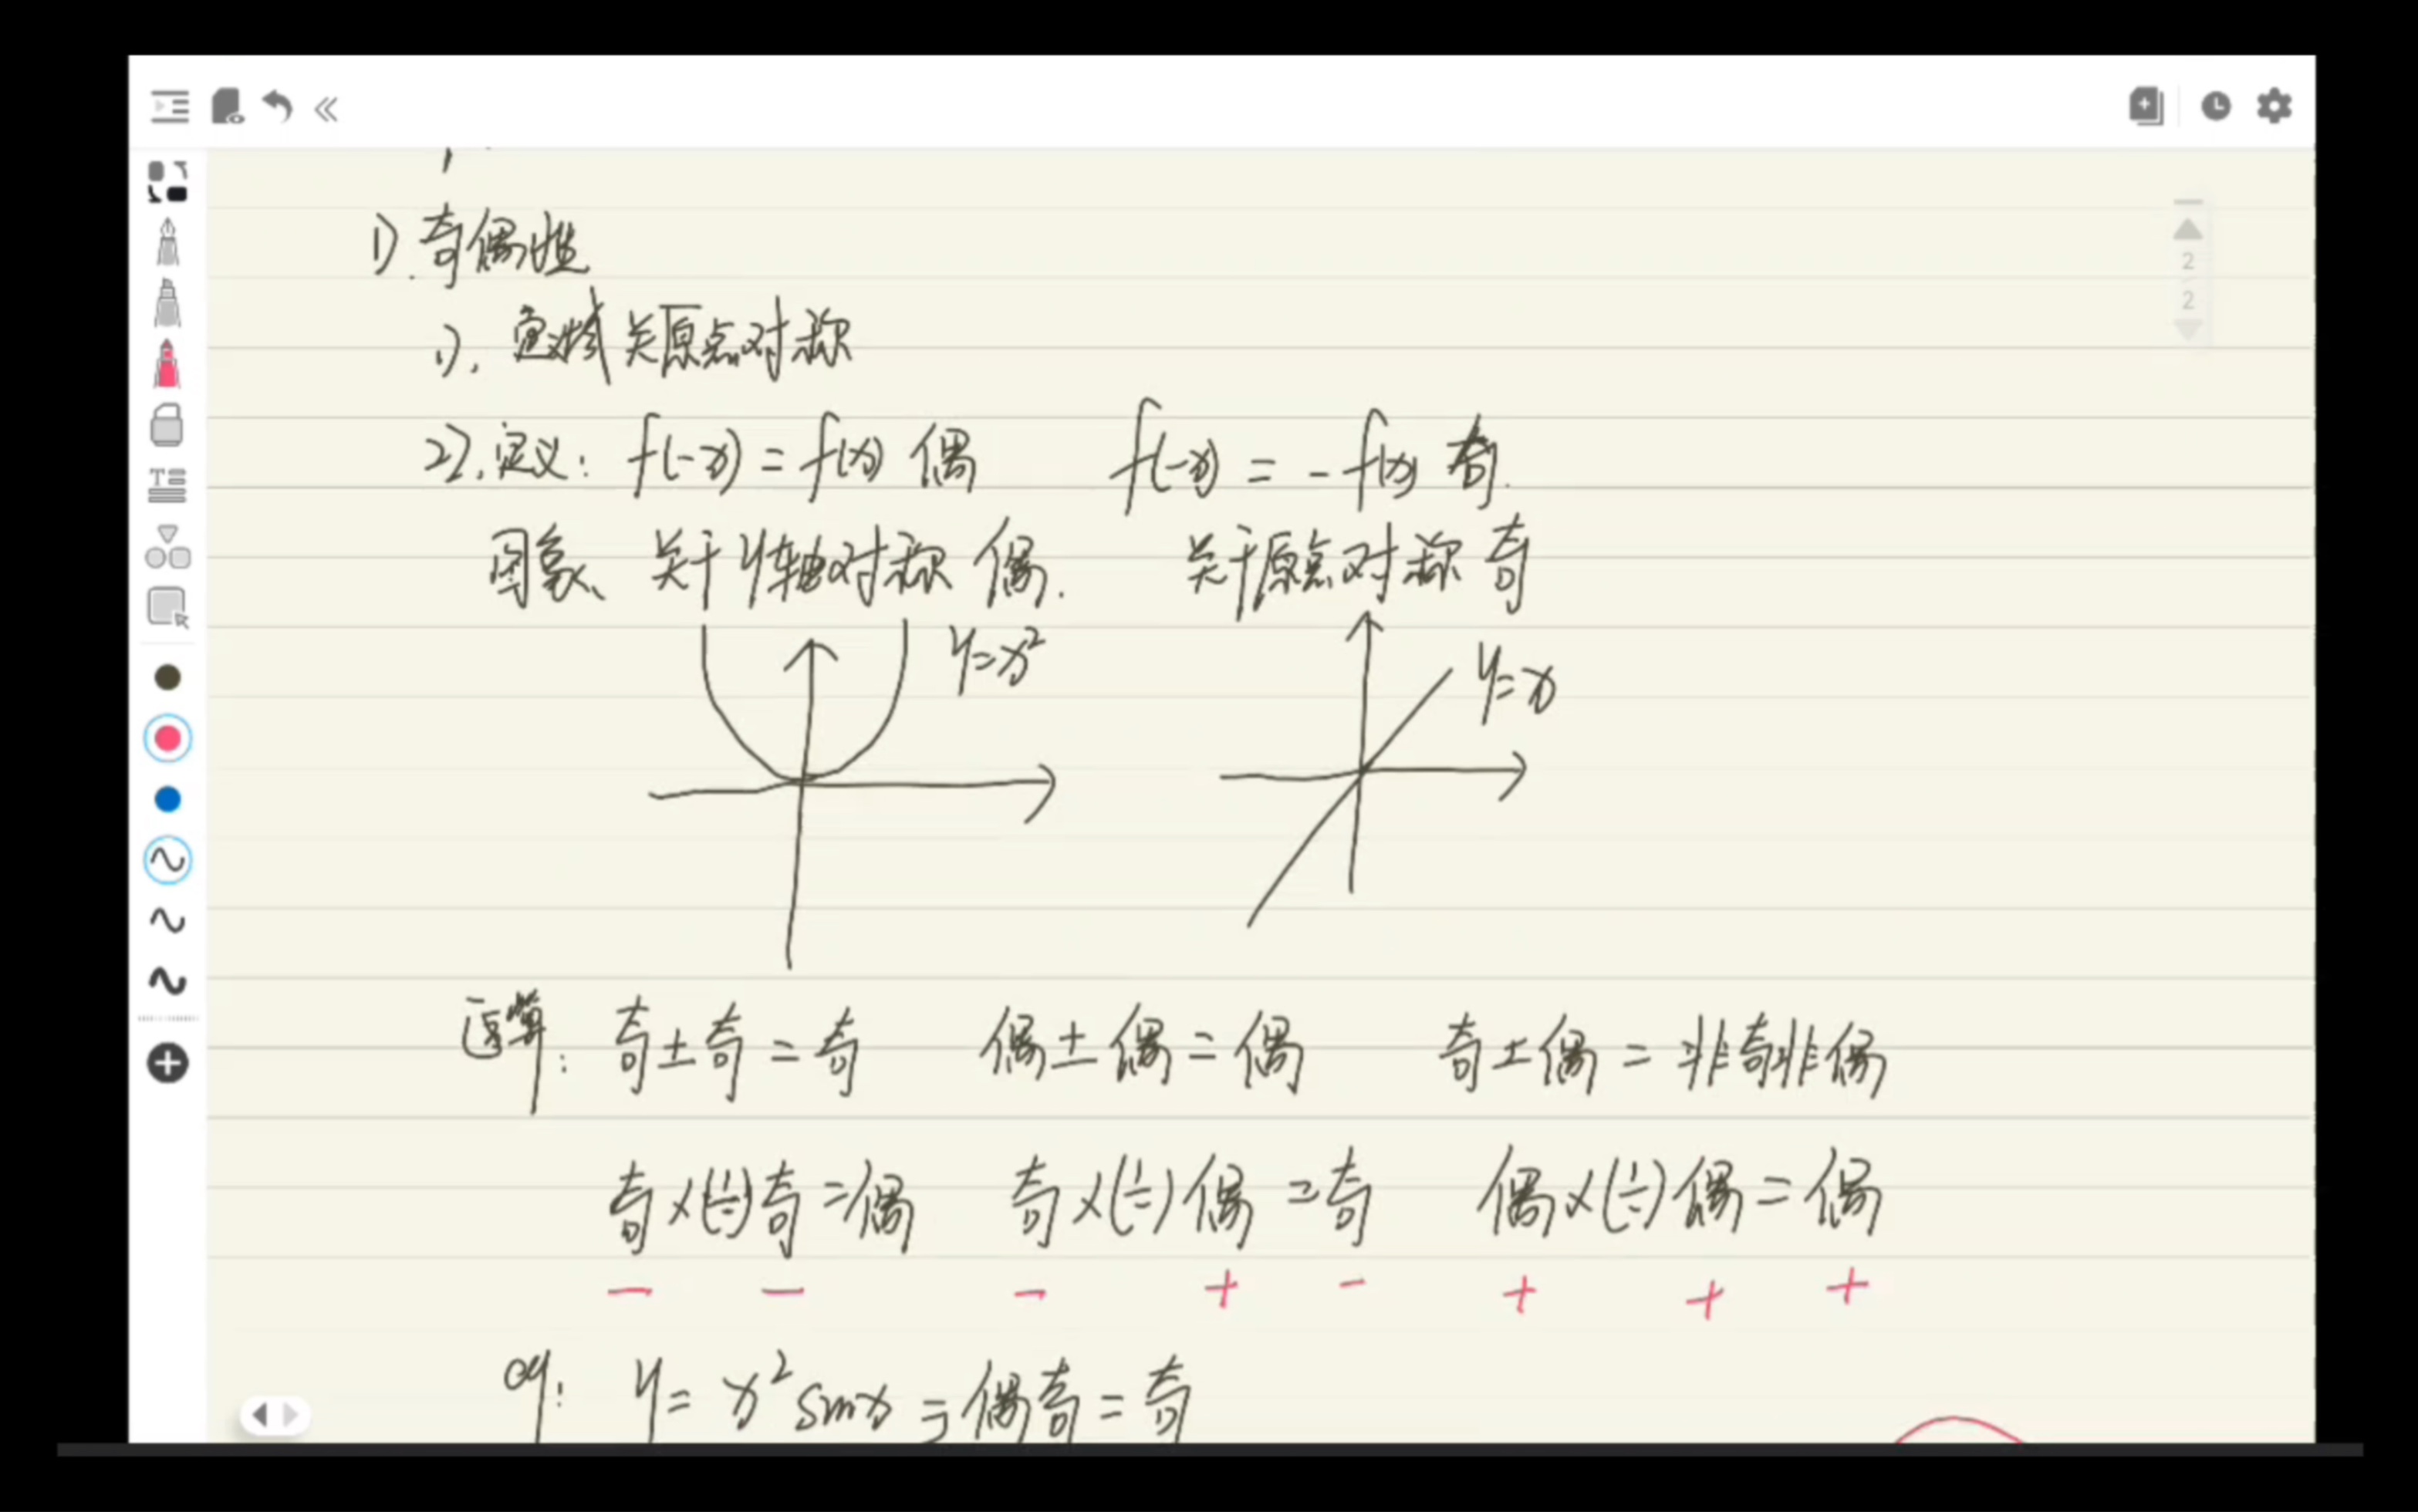 1). 奇偶性
1). 定义域关原点对称
2). 定义: f(-x) = f(x) 偶 f(-x) = -f(x) 奇.
图象、关于y轴对称 偶. 关于原点对称 奇
y=x² y=x
运算: 奇±奇=奇 偶±偶=偶 奇±偶=非奇非偶
奇×(÷)奇=偶 奇×(÷)偶=奇 偶×(÷)偶=偶
- - - + - + + +
eg: y= x² sinx = 偶奇=奇
2
2